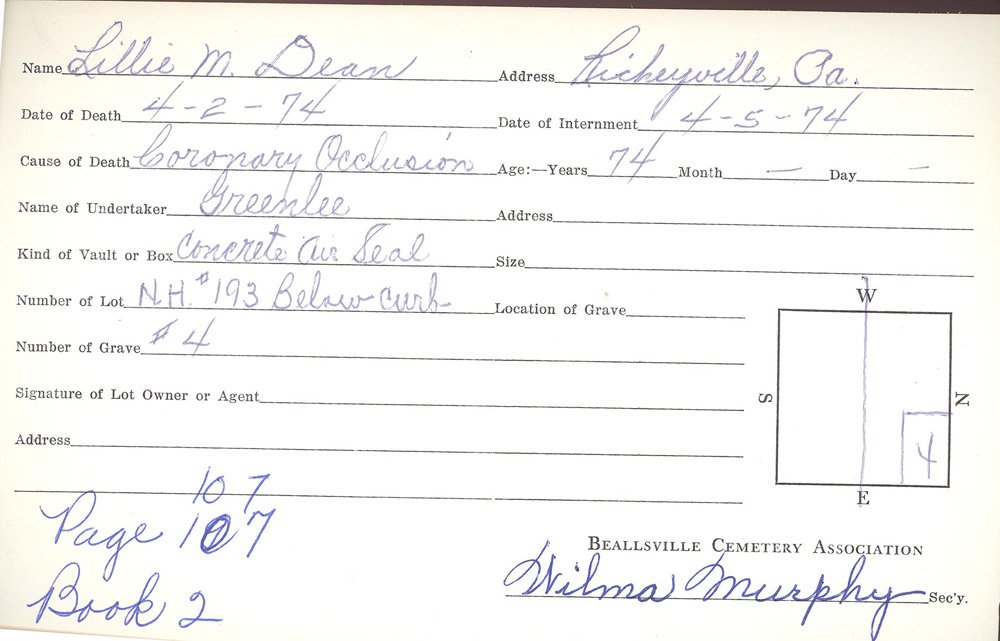 Name Lillie M. Dean Address Richeyville, Pa.
Date of Death 4-2-74 Date of Internment 4-5-74
Cause of Death Coronary Occlusion Age:—Years 74 Month — Day —
Name of Undertaker Greenlee Address
Kind of Vault or Box Concrete Air Seal Size
Number of Lot N.H. #193 Below curb Location of Grave
Number of Grave #4
Signature of Lot Owner or Agent
Address
W
S N
4
E
107
Page 107
Book 2
BEALLSVILLE CEMETERY ASSOCIATION
Wilma Murphy Sec'y.